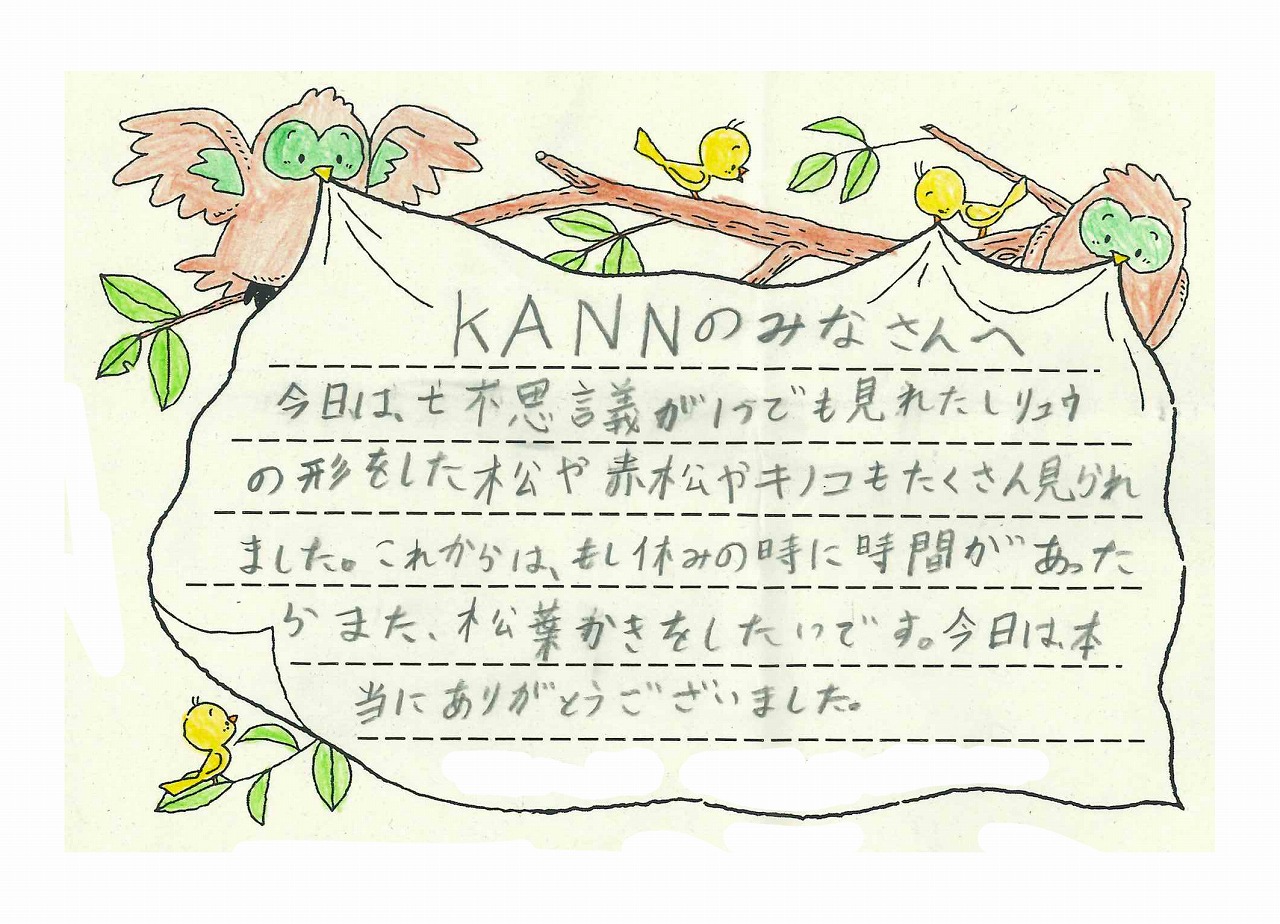 KANNのみなさんへ
今日は、七不思議が1つでも見れたしリュウ
の形をした松や赤松やキノコもたくさん見られ
ました。これからは、もし休みの時に時間があった
らまた、松葉かきをしたいです。今日は、本
当にありがとうございました。